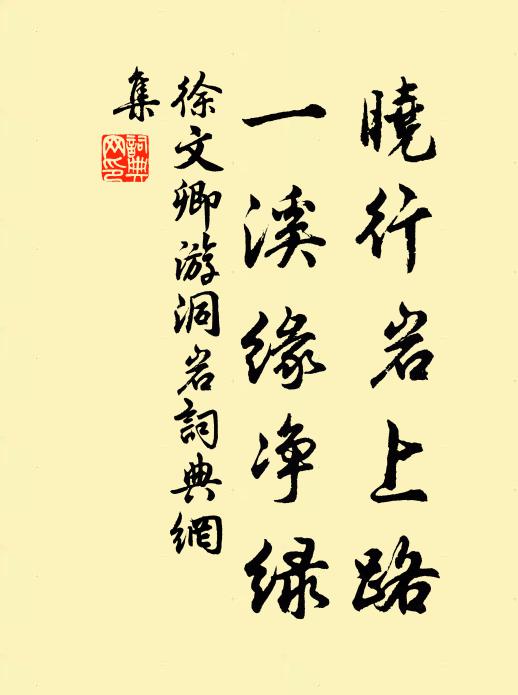 曉行岩上路
一溪緣净綠
徐文卿游洞岩詞典網
集
詞典
网印